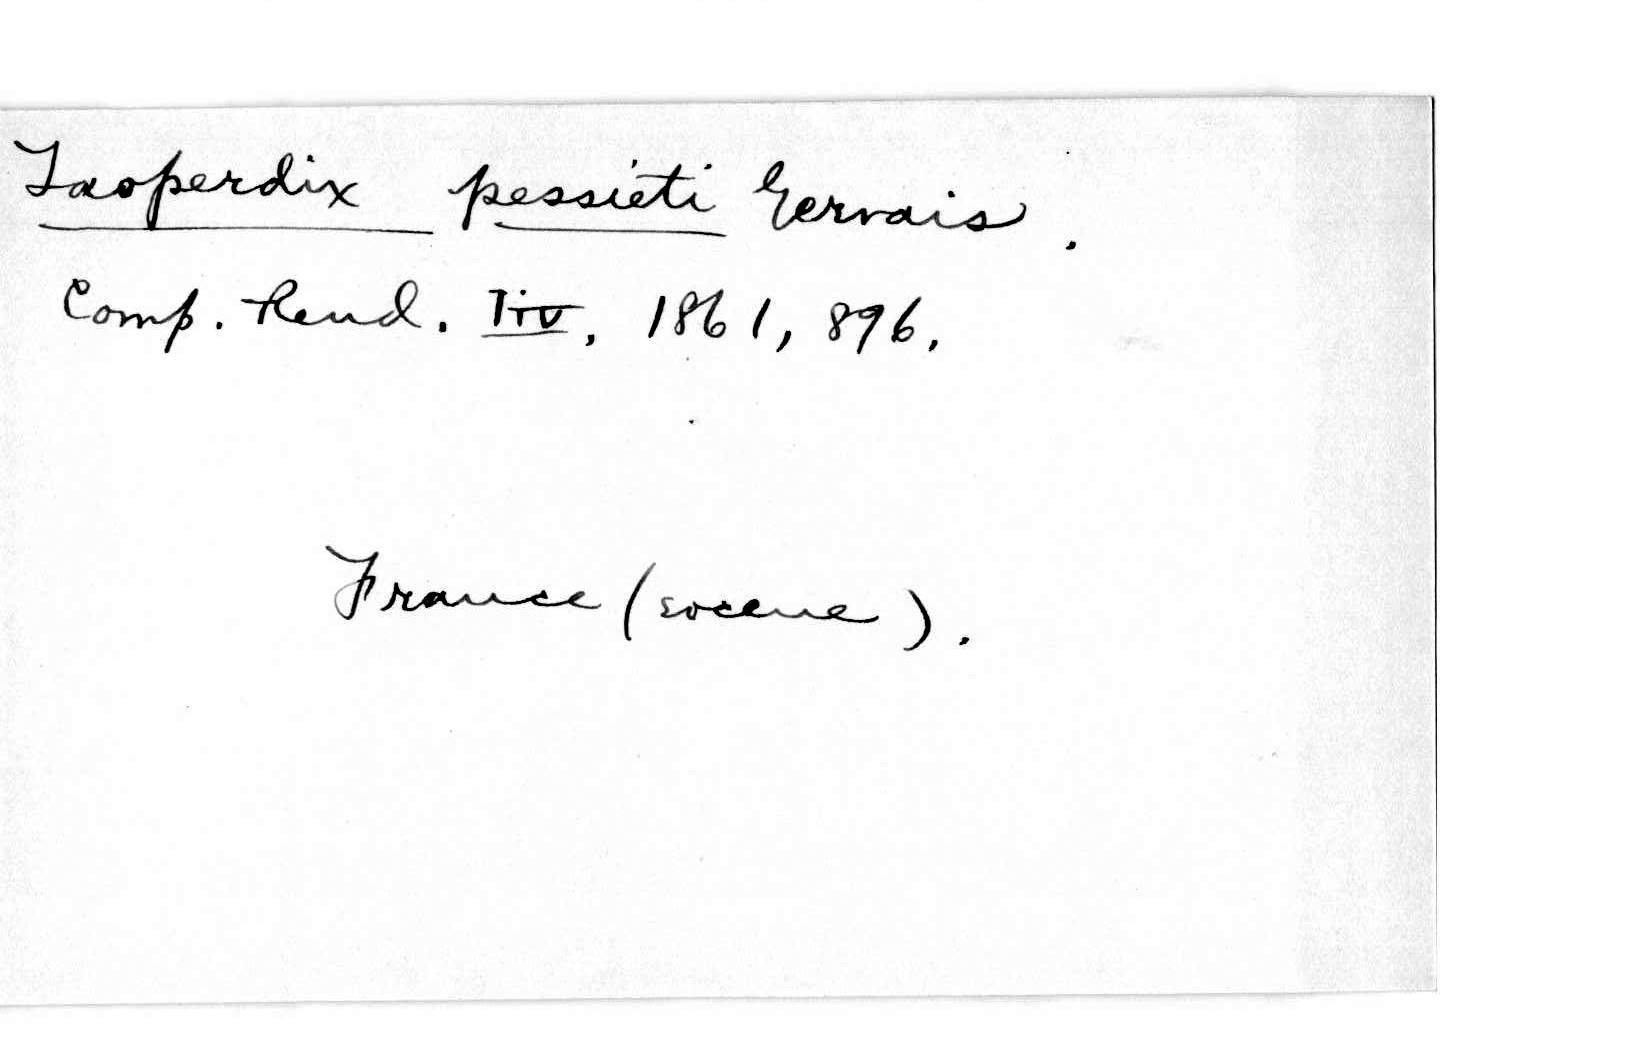 Taoperdix pessieti Gervais.
Comp. Rend. liv, 1861, 896.
France (eocene).